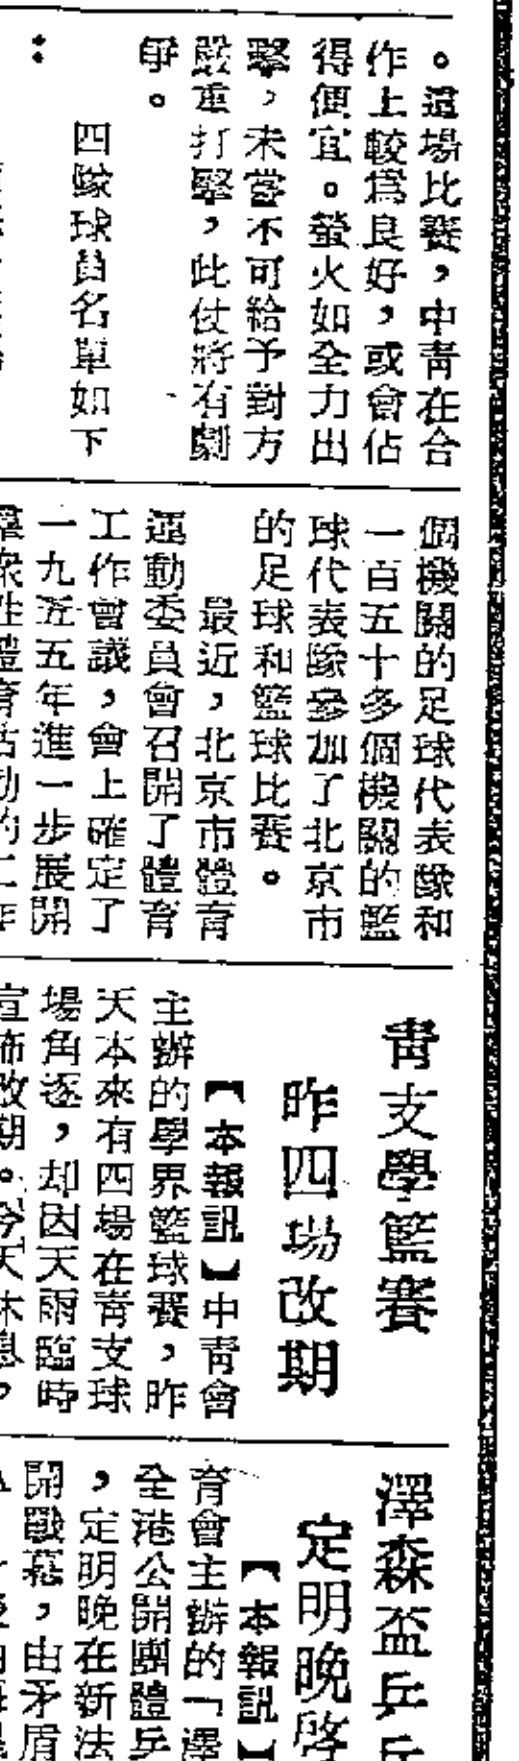 。這場比賽，中靑在合
作上較爲良好，或會佔
得便宜。螢火如全力出
擊，未嘗不可給予對方
嚴重打擊，此仗將有劇
爭。
四隊球員名單如下
：
個機關的足球代表隊和
一百五十多個機關的籃
球代表隊參加了北京市
的足球和籃球比賽。
最近，北京市體育
運動委員會召開了體育
工作會議，會上確定了
一九五五年進一步展開
羣衆性體育活動的工作
靑支學籃賽
昨四場改期
【本報訊】中靑會
主辦的學界籃球賽，昨
天本來有四場在靑支球
場角逐，却因天雨臨時
宣佈改期。今天休息，
澤森盃乒乓
定明晚啓
【本報訊】
育會主辦的「澤
全港公開團體乒
，定明晚在新法
開戰幕，由矛盾